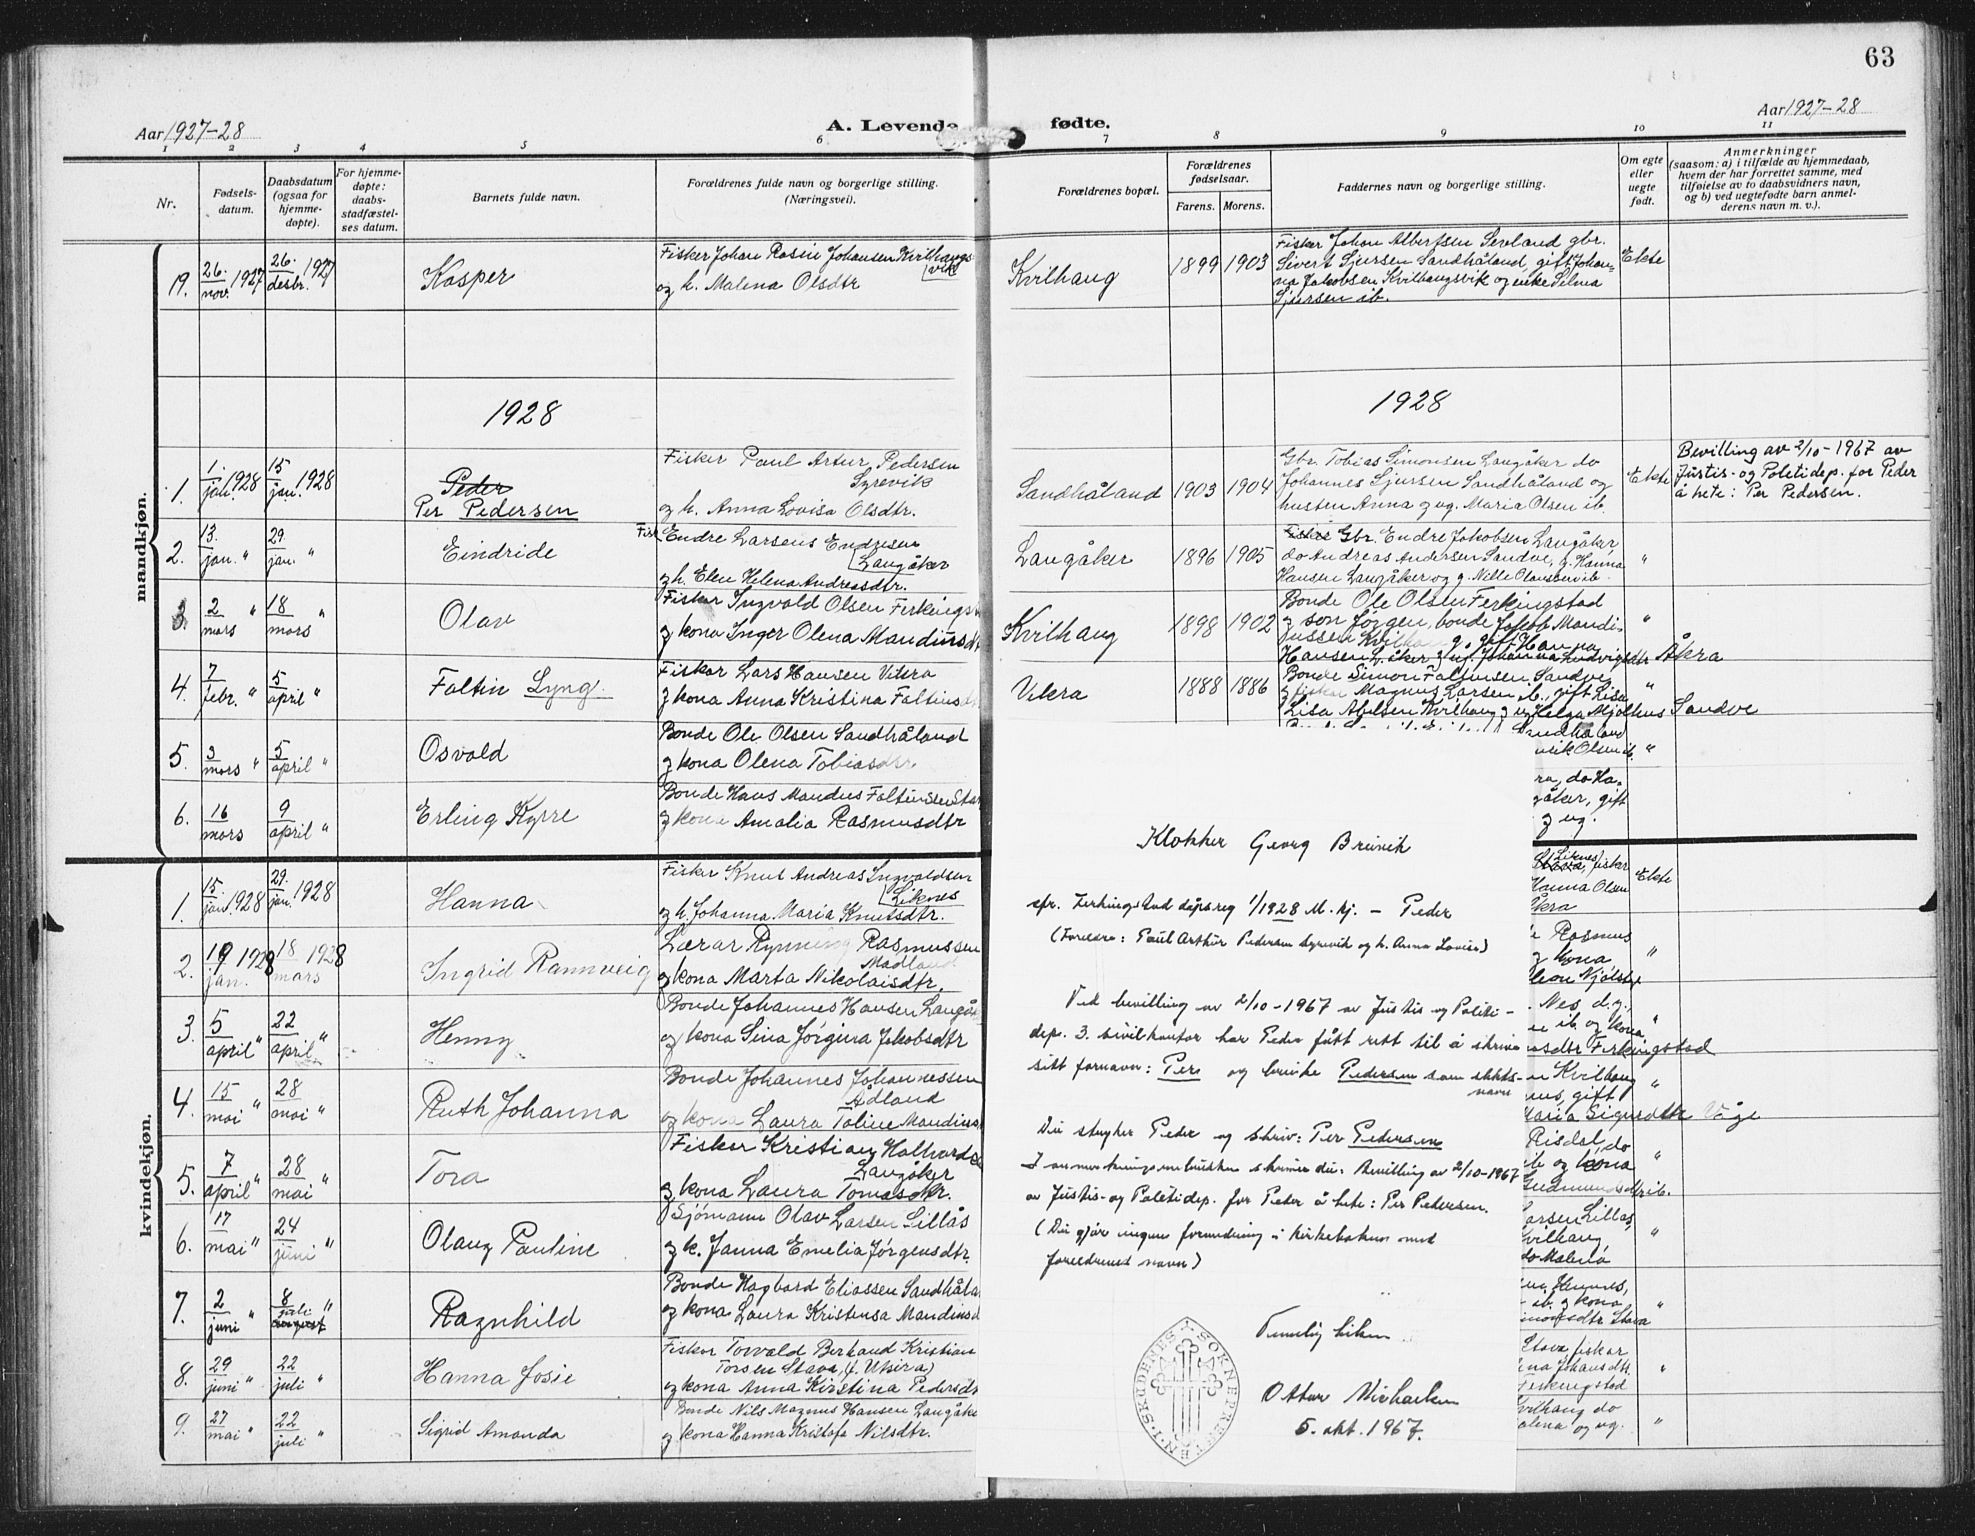 63
Aar 1927-28
A. Levende fødte.
Aar 1927-28
1 2 3 4 5 6 7 8 9 10 11
Nr.
Fødsels-datum.
Daabsdatum (ogsaa for hjemme-døpte).
For hjemme-døpte: daabs-stadfæstel-ses datum.
Barnets fulde navn.
Forældrenes fulde navn og borgerlige stilling. (Næringsvei).
Forældrenes bopæl.
Forældrenes fødselsaar.
Farens. Morens.
Faddernes navn og borgerlige stilling.
Om egte eller uegte født.
Anmerkninger
(saasom: a) i tilfælde av hjemmedaab,
hvem der har forrettet samme, med
tilføielse av to daabsvidners navn,
og b) ved uegtefødte barn anmel-
derens navn m. v.).
mandkjøn.
19. 26. nov. 1927 26. desbr. 1927 Kasper
Fisker Johan Rasin Johansen Kvilhaugs-
vik
og h. Malena Olsdtr
Kvilhaug 1899 1903
Fisker Johan Albertsen Sevland gbr.
Sivert Sjursen Sandhåland, gift Johan-
na Jakobsen Kvilhaugsvik og enke Selma
Sjursen ib.
Ekte
1928
1928
1. 1. jan. 1928 15 jan. 1928 Peder
Per Pedersen
Fisker Paul Artur Pedersen
Syrevik
og h. Anna Lovisa Olsdtr.
Sandhåland 1903 1904
Gbr. Tobias Simonsen Langåker do
Johannes Sjursen Sandhåland og
hustru Anna og ug. Maria Olsen ib.
Ekte
Bevilling av 2/10-1967 av
Justis- og Politidep. for Peder
å hete: Per Pedersen.
2. 13. jan. " 29 jan. " Eindride
Fisk. Endre Larsens Endresen
Langåker
og h. Elen Helena Andreasdtr.
Langåker 1896 1905
Fisker Gbr. Endre Jakobsen Langåker
do Andreas Andersen Sandve, g. Hanna
Hansen Langåker og g. Nille Olausen ib.
"
3. 2 mars " 18 mars " Olav
Fisker Ingvald Olsen Ferkingst
og kona Inger Olena Mandiusdt
Kvilhaug 1898 1902
Bonde Ole Olsen Ferkingstad
og son Jørgen, bonde Jakob Mandi-
ussen Kvilhaug, gift Hanna
Hansen L.åker og ug. Johanna Ludvigsdtr Åkra
"
4. 7 febr. " 5 april " Faltin Lyng.
Fisker Lars Hansen Vikra
og kona Anna Kristina Faltinsd
Vikra 1888 1886
Bonde Simon Faltinsen Sandve
og fisker Magnus Larsen ib., gift Lisa
Lisa Abelsen Kvilhaug og ug Helga Mjølhus Sandve
"
5. 3 mars " 5 april " Osvald
Bonde Ole Olsen Sandhåland
og kona Olena Tobiasdtr.
Sandhåland
vik Olsen ib. "
6. 16 mars 9 april " Erling Kyrre
Bonde Hans Mandius Faltinsen Sta
og kona Amalia Rasmusdtr
ra, do Ha-
gåker, gift
og ug.
kvindekjøn.
1. 15. jan. 1928 29. jan. 1928 Hanna
Fisker Knut Andreas Ingvaldsen
Liknes
og h. Johanna Maria Knutsdtr.
Liknes, fisker
Hanna Olsen
kra
Ekte
2. 19 jan. 1928 18 mars 1928 Ingrid Rannveig
Lærar Rynning Rasmussen
Madland
og kona Marta Nikolaisdtr.
Rasmus
og kona
"
3 5 april " 22 april " Henny
Bonde Johannes Hansen Langå
og kona Sina Jørgina Jakobsdtr
Nes d.y.,
ne ib. og kona "
sdtr Ferkingstad
4. 15 mai " 28 mai " Ruth Johanna
Bonde Johannes Johannessen
Ådland
og kona Laura Toline Mandiuss
ne Kvilhaug "
gift
Maria Sigurdtr Våge
5. 7 april " 28 mai " Tora
Fisker Kristian Halvards
Langåker
og kona Laura Tomasdtr.
Risdal, do
ib og kona "
Gudmundsdtr ib.
6. 17 mai " 24 juni " Olaug Pauline
Sjømann Olav Larsen Lillås
og k. Janna Emelia Jørgensdtr.
Larsen Lillås,
Kvilhaug "
do Malena
7. 2 juni " 8 juli august " Ragnhild
Bonde Hagbard Eliassen Sandhåla
og kona Laura Kristensa Mandiusd
ib. og kona "
monsdtr Stava
8. 29 juni " 22 juli " Hanna Josie
Fisker Torvald Berhaud Kristian
Torsen Stava, (f. Utsira)
og kona Anna Kirstina Pedersdt
Stava fisker
na Johansdtr. "
Ferkingstad
9. 27 mai " 22 juli " Sigrid Amanda
Bonde Nils Magnus Hansen Langåke
og kona Hanna Kristofa Nilsdtr.
Kvilhaug do
alena og ug. "
Klokker Georg Breivik
spr. Ferkingstad dåpsreg 1/1928 M. kj. - Peder
(Foreldre: Paul Arthur Pedersen Syrevik og h. Anna Lovise)
Ved bevilling av 2/10-1967 av Justis og Politi-
dep. 3. sivilkontor har Peder fått rett til å skrive
sitt fornavn: Per og bruke Pedersen som slekts-
navn
Du stryker Peder og skriv: Per Pedersen
I anmerkningsrubrikken skriver du: Bevilling av 2/10-1967
av Justis- og Politidep. for Peder å hete: Per Pedersen.
(Du gjør ingen forandring i kirkeboken med
foreldrenes navn)
Vennlig hilsen
Ottar Michaelsen
5. okt. 1967.
SOKNEPRESTEN I SKUDENES